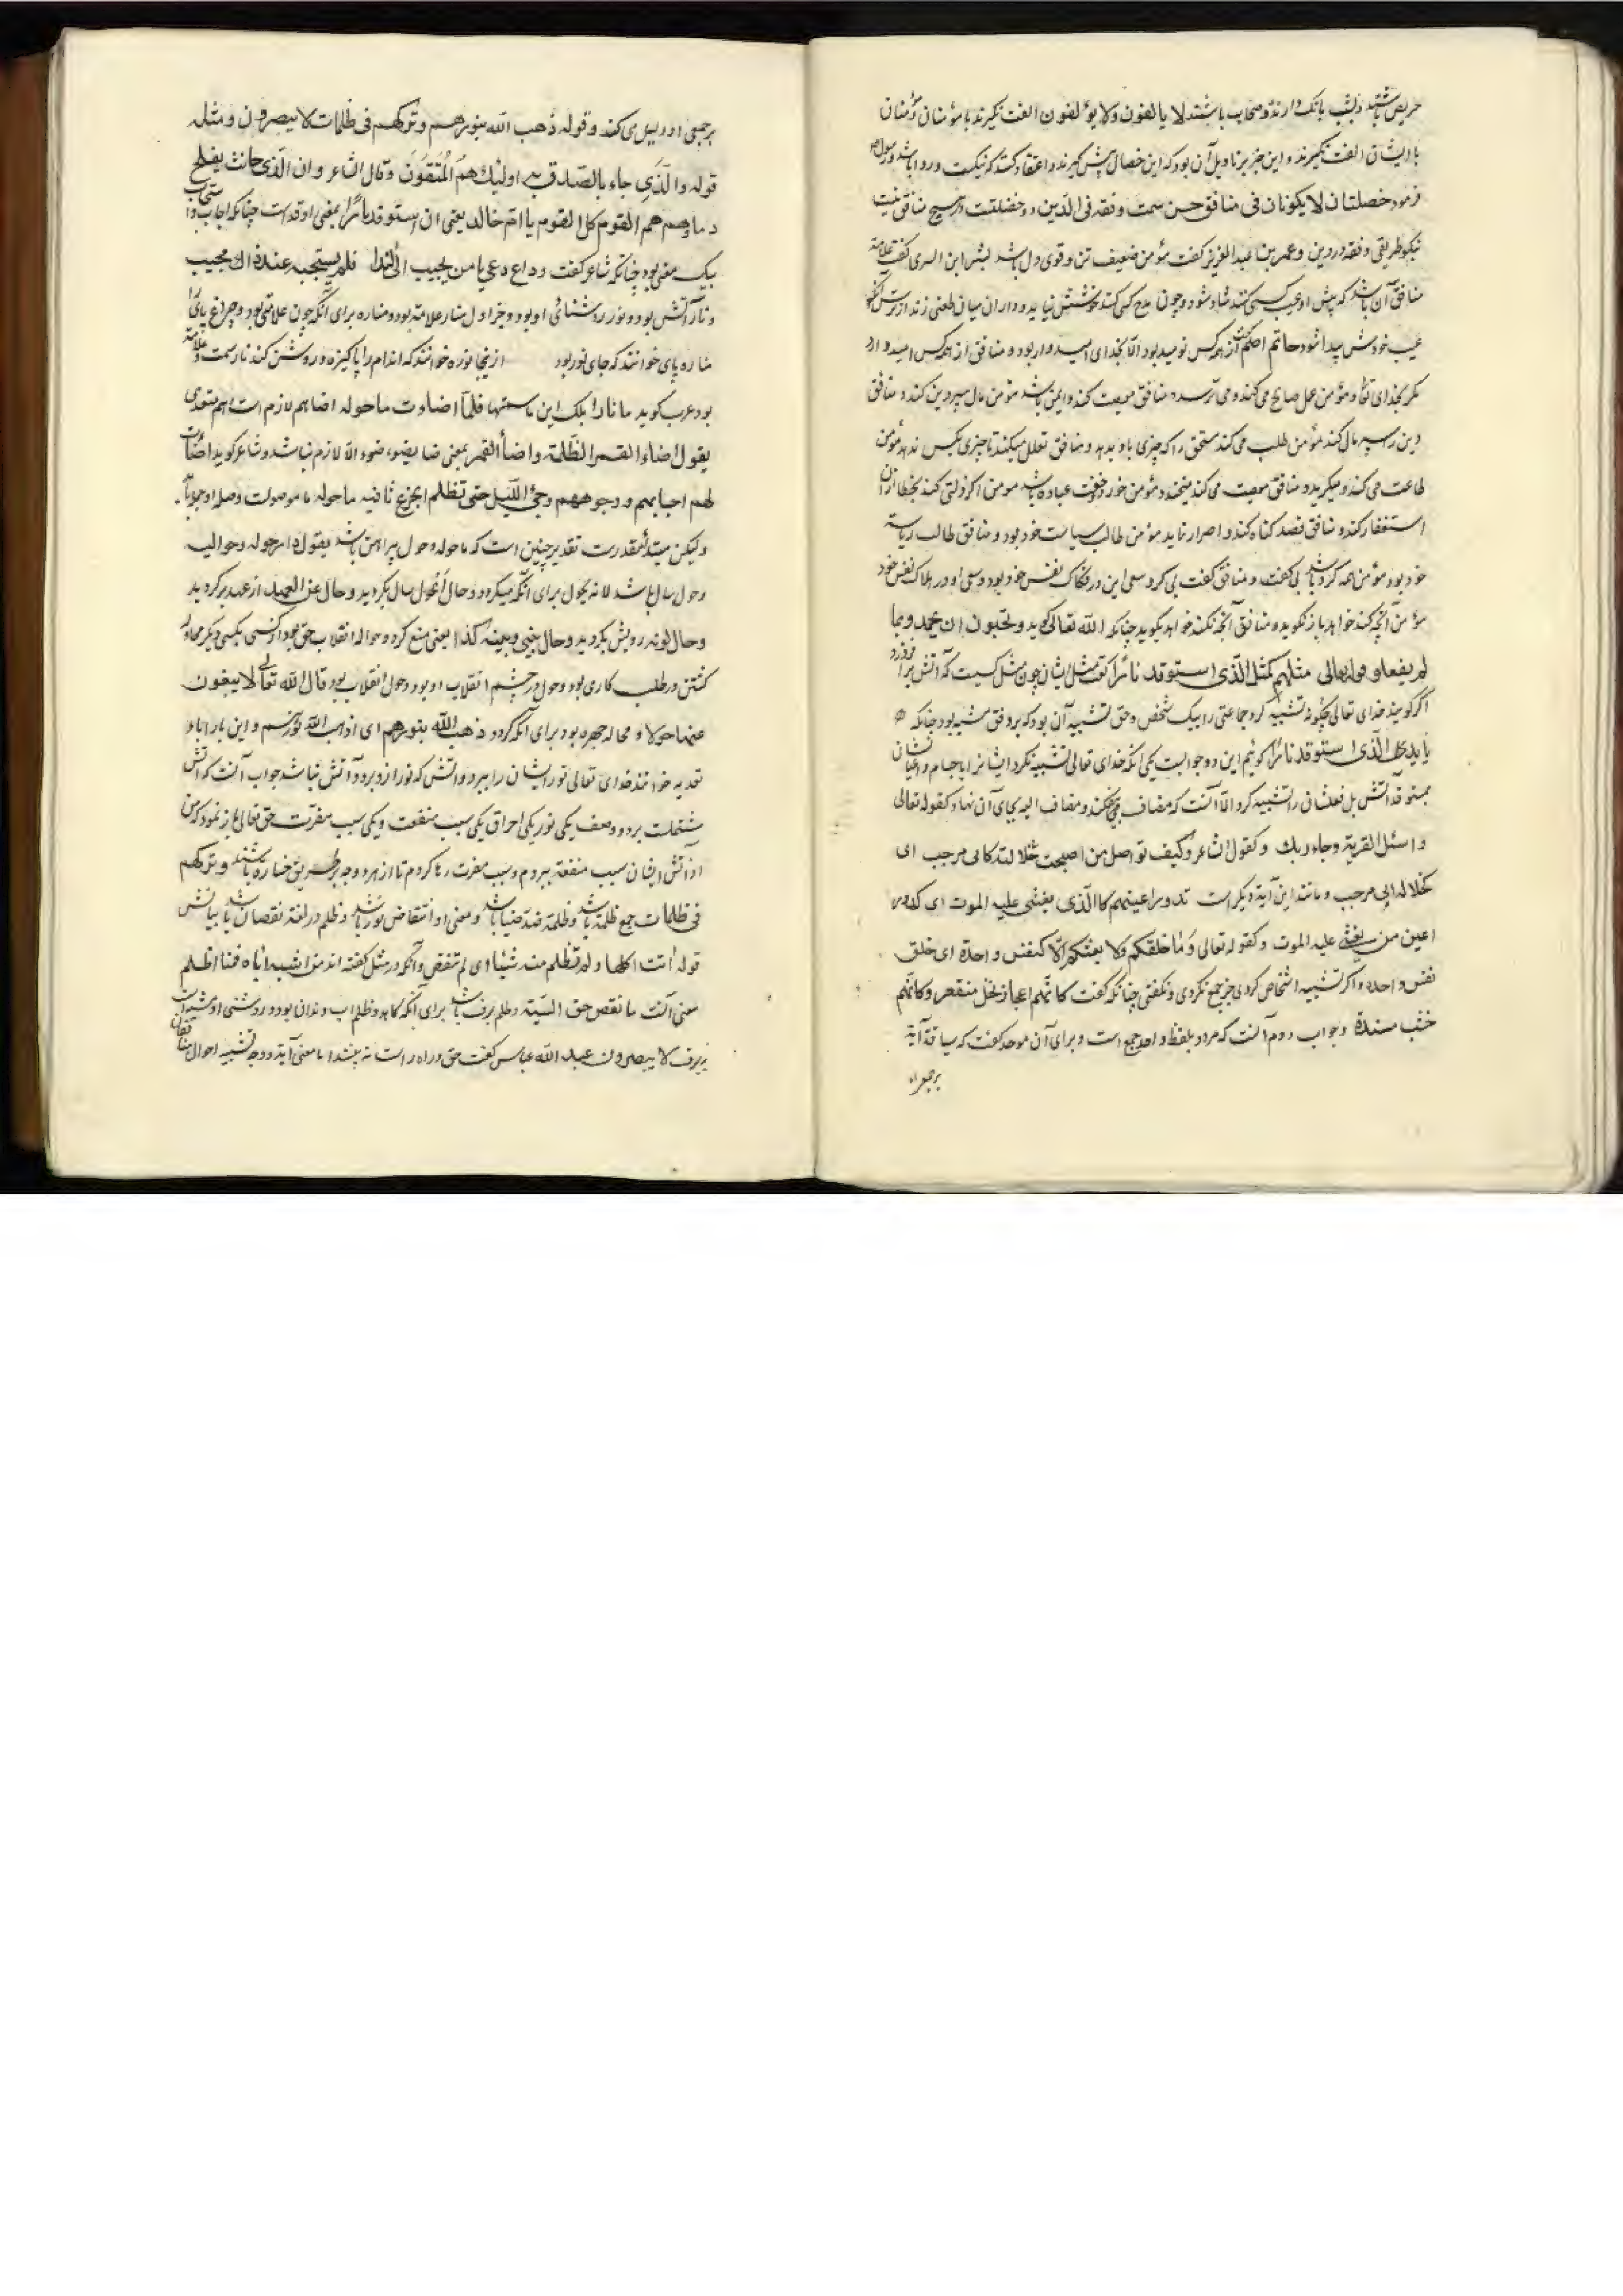 حریص باشند و بشب بانک دارند و صخاب باشند لا یالفون ولا یؤلفون الفت نکیرند با مؤمنان و مؤمنان
با ایشان الفت نکیرند و این خبر بر تاویل آن بود که این خصال پیش کیرند و اعتقاد کنند که نیکست و روا باشد و رسول ص
فرمود خصلتان لا یکونان فی منافق حسن سمت و فقه فی الدین دو خصلتست در هیچ منافق نیست
نیکو طریقی و فقه در دین و عمر بن عبدالعزیز کفت مؤمن ضعیف تن و قوی دل باشد بشر ابن السری کفت علامة
منافق آن باشد که پیش او عیب کسی کنند شاد شود و چون مدح کسی کنند خوشش نیاید و در آن میان طعنی زند از ترس آنکه
عیب خودش پیدا شود حاتم اصم کفت از همه کس نومید بود الا بخدای امیدوار بود و منافق از همه کس امید دارد
مکر بخدای تعالی و مؤمن عمل صالح می کند و می ترسد و منافق معصیت کند و ایمن باشد مؤمن مال سپر دین کند و منافق
دین را سپر مال کند مؤمن طلب می کند مستحق را که چیزی باو بدهد و منافق تعلل میکند تا چیزی بکس ندهد مؤمن
طاعت می کند و میکرید و منافق معصیت می کند و میخندد مؤمن خود در خلوت عباده باشد مومن اکر ذلتی کند بخطا از آن
استغفار کند و منافق قصد کناه کند و اصرار نماید مؤمن طالب سیاست خود بود و منافق طالب ریاسة
خود بود مؤمن همه کرد باشد بی کفت و منافق کفت بی کرد سعی این در فکاک نفس خود بود و سعی او در هلاک نفس خود
مؤمن آنچه کند خواهد باز نکوید و منافق آنچه نکند خواهد بکوید چنانکه الله تعالی کوید و یحبون ان یحمدوا بما
لم یفعلوا قوله تعالی مثلهم کمثل الذی استوقد نارا کفت مثل ایشان چون مثل کسیست که آتش برافروزد
اکر کویند خدای تعالی چکونه تشبیه کرد جماعتی را بیک شخص و حق تشبیه آن بود که بر وفق مشبه بود چنانکه
الذی استوقد نارا کوئیم این دو جوابست یکی آنکه خدای تعالی تشبیه نکرد ایشانرا باجسام و اعیان ایشان
بمستوقد آتش بل فعلشان را تشبیه کرد الا آنست که مضاف بیفکند و مضاف الیه بجای آن نهاد کقوله تعالی
واسئل القریة وجاء ربک و کقول الشاعر وکیف تواصل من اصبحت خلالته کابی مرحب ای
کخلالة ابی مرحب و مانند این آیة دیکر است تدور اعینهم کالذی یغشی علیه الموت ای کدور
اعین من یغشی علیه الموت و کقوله تعالی وما خلقکم ولا بعثکم الا کنفس واحدة ای خلق
نفس واحده و اکر تشبیه اشخاص کردی جز جمع نکردی و نکفتی چنانکه کفت کانهم اعجاز نخل منقعر وکانهم
خشب مسندة و جواب دوم آنست که مرد و بلفظ واحد جمع است و برای آن موحد کفت که سیاقة آیة
بر جمع او
بر جمعی او دلیل می کند وقوله ذهب الله بنورهم وترکهم فی ظلمات لا یبصرون ومثله
قوله والذی جاء بالصدق به اولئک هم المتقون وقال الشاعر وان الذی حانت بفلج
دماؤهم هم القوم کل القوم یا ام خالد یعنی ان استوقد نارا بمعنی اوقد است چنانکه اجاب و استجاب
بیک معنی بود چنانکه شاعر کفت وداع دعی یا من یجیب الی الندا فلم یستجبه عند ذاک مجیب
و نار آتش بود و نور روشنائی او بود و جز اول منار علامة بود و مناره برای آنکه چون علامتی بود و چراغ پای را
مناره پای خوانند که جای نور بود از ینجا نوره خوانند که اندام را پاکیزه و روشن کند نار سمت و علامة
بود عرب کوید ما نار بلک این ما سمتها فلما اضاءت ما حوله اضا هم لازم است و هم متعدی
یقول اضاء القمر الظلمة واضاء القمر بمعنی ضا یضو، ضوء الا لازم نباشد و شاعر کوید اضاءت
لهم احسابهم ووجوههم دجی اللیل حتی نظم الجزع ثاقبه ما حوله ما موصولست وصله او جوابا
ولکن مبتدا مقدرست تقدیر چنین است که ما حوله و حول پیرامن باشد یقول دار حوله وحوالیه
و حول سال باشد لانه یحول برای آنکه میکردد و حال الحول سال بکردید و حال عن العهد از عهد برکردید
و حال لونه رویش بکردید و حال بینی وبینه کذا یعنی منع کرد و حواله انقلاب حق بود از کسی بکسی دیکر محاوله
کشتن در طلب کاری بود و حول در چشم انقلاب او بود و حول انقلاب بود قال الله تعالی لا یبغون
عنها حولا و محاله چهره بود برای آنکه کردد ذهب الله بنورهم ای اذهب الله نورهم و این با را باء
تعدیه خوانند خدای تعالی نور ایشان را ببرد و آتش که نور ازو برود آتش نباشد جواب آنست که آتش
مشتملست بر دو وصف یکی نور یکی احراق یکی سبب منفعت و یکی سبب مضرت حق تعالی باز نمود که من
از آتش ایشان سبب منفعة ببردم و سبب مضرت رها کردم تا از هر دو وجه بطریق خساره باشند وترکهم
فی ظلمات جمع ظلمة باشد و ظلمة ضد ضیا باشد و معنی او انتقاض نور باشد و ظلم در لغة نقصان باشد بیانش
قوله آتت اکلها ولم تظلم منه شیئا ای لم تنقص و آنکه در مثل کفته اند من اشبه اباه فما ظلم
معنی آنست ما نقص حق السیة و ظلم برف باشد برای آنکه کاهد و ظلم اب دندان بود و روشنی او تشبیه است
ببرف لا یبصرون عبد الله عباس کفت حق و راه راست نه بینند اما معنی آیة و وجه تشبیه احوال منافقان